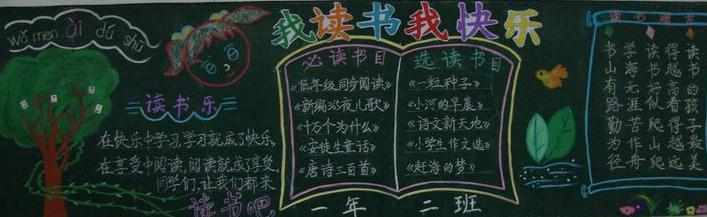 wǒ men ài dú shū
我读书我快乐
读书乐
在快乐中学习,学习就成了快乐
在享受中阅读,阅读就成了享受
同学们,让我们都来
读书吧
必读书目
《低年级同步阅读》
《新编365夜儿歌》
《十万个为什么》
《安徒生童话》
《唐诗三百首》
选读书目
《一粒种子》
《小河的早晨》
《语文新天地》
《小学生作文选》
《赶海的梦》
一年 二班
读书
书山有路勤为径
学海无涯苦作舟
读书好似爬山爬
得越高看得越远
读书的孩子最美